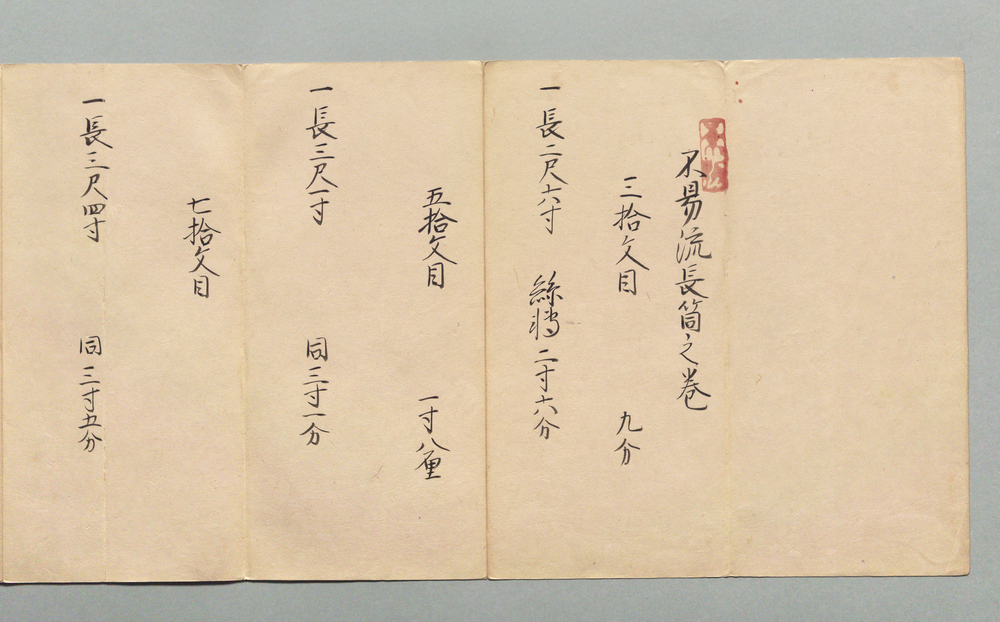 不易流長筒之巻
三拾文目 九分
一長二尺六寸 絲 二寸六分
五拾文目 一寸八厘
一長三尺一寸 同三寸一分
七拾文目
一長三尺四寸 同三寸五分